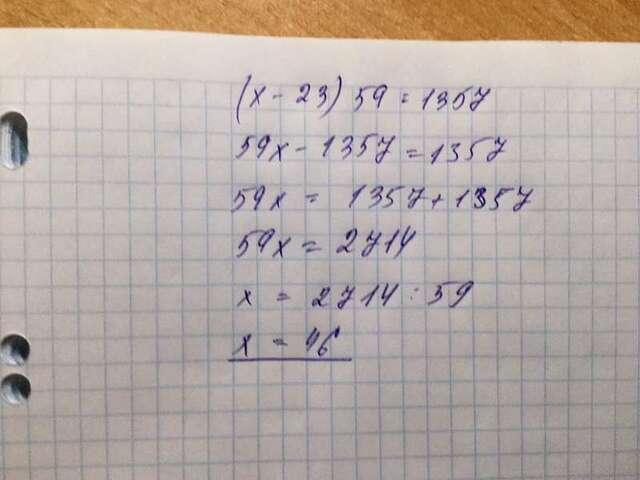 (x - 23) 59 = 1357
59x - 1357 = 1357
59x = 1357 + 1357
59x = 2714
x = 2714 : 59
x = 46